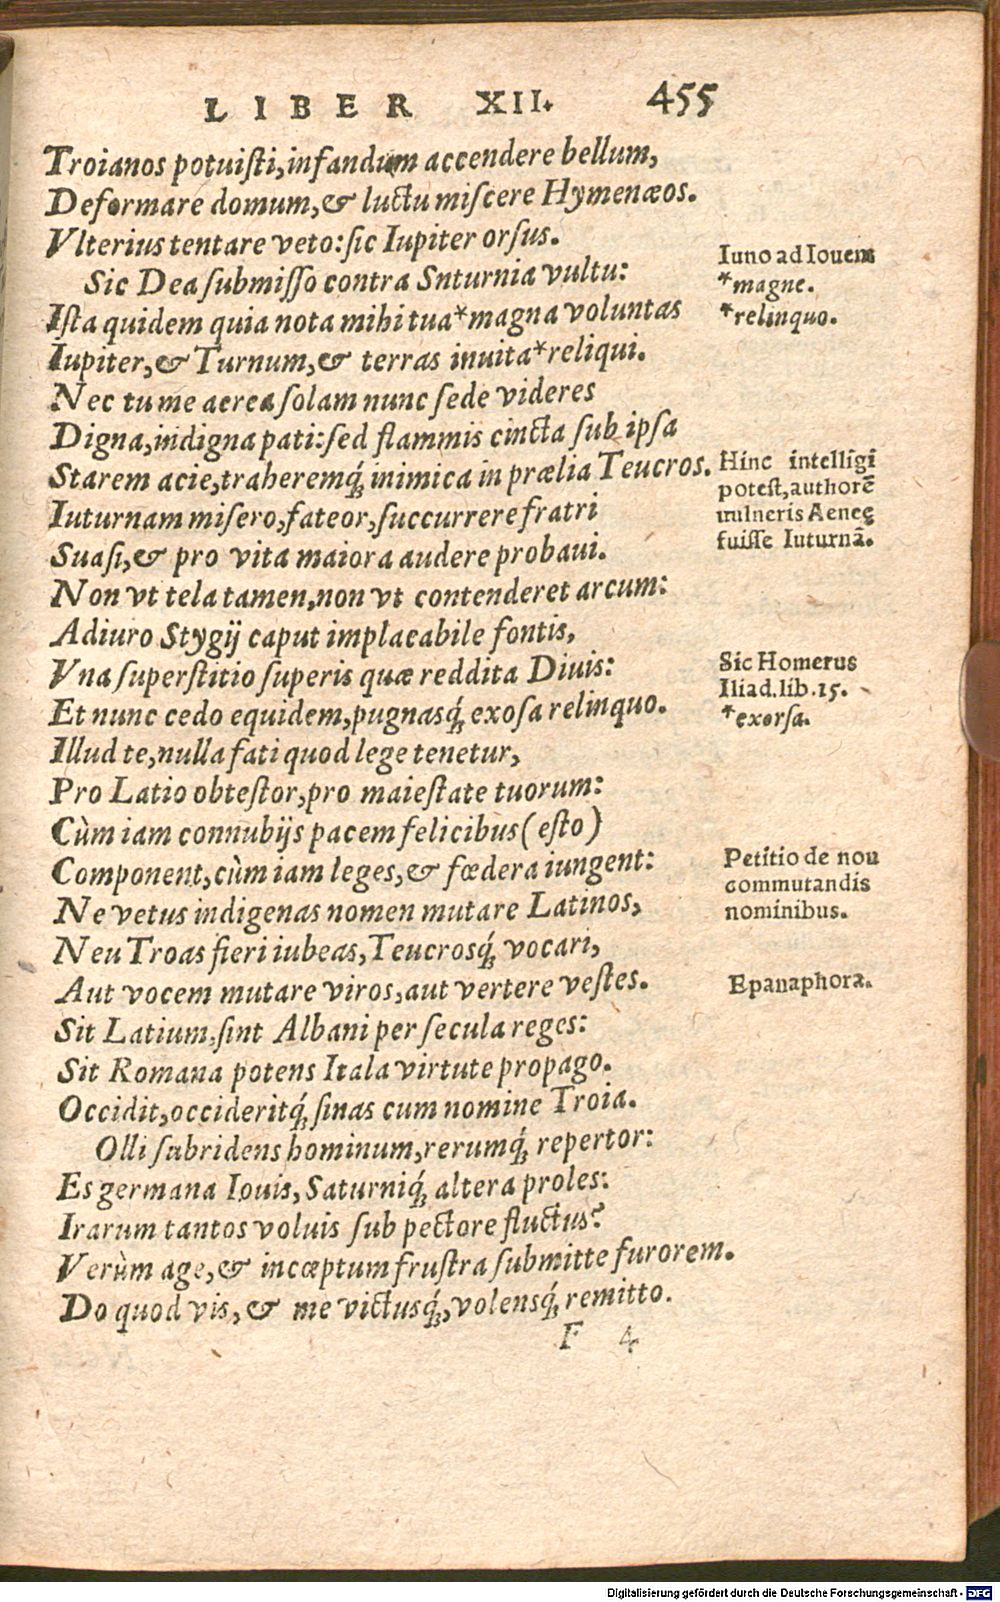 LIBER XII. 455
Troianos potuisti, infandum accendere bellum,
Deformare domum, & luctu miscere Hymenæos.
Vlterius tentare veto: sic Iupiter orsus.
Sic Dea submisso contra Snturnia vultu:
Ista quidem quia nota mihi tua*magna voluntas
Iupiter, & Turnum, & terras inuita*reliqui.
Nec tu me aerea solam nunc sede videres
Digna, indigna pati: sed flammis cincta sub ipsa
Starem acie, traheremq́; inimica in prælia Teucros.
Iuturnam misero, fateor, succurrere fratri
Suasi, & pro vita maiora audere probaui.
Non vt tela tamen, non vt contenderet arcum:
Adiuro Stygij caput implacabile fontis,
Vna superstitio superis quæ reddita Diuis:
Et nunc cedo equidem, pugnasq́; exosa relinquo.
Illud te, nulla fati quod lege tenetur,
Pro Latio obtestor, pro maiestate tuorum:
Cùm iam connubijs pacem felicibus (esto)
Component, cùm iam leges, & fœdera iungent:
Ne vetus indigenas nomen mutare Latinos,
Neu Troas fieri iubeas, Teucrosq́; vocari,
Aut vocem mutare viros, aut vertere vestes.
Sit Latium, sint Albani per secula reges:
Sit Romana potens Itala virtute propago.
Occidit, occideritq́; sinas cum nomine Troia.
Olli subridens hominum, rerumq́; repertor:
Es germana Iouis, Saturniq́; altera proles:
Irarum tantos voluis sub pectore fluctus?
Verùm age, & incœptum frustra submitte furorem.
Do quod vis, & me victusq́;, volensq́; remitto.
F 4
Iuno ad Iouem
*magne.
*relinquo.
Hinc intelligi
potest, authorē
vulneris Aeneę
fuisse Iuturnā.
Sic Homerus
Iliad. lib. 15.
*exorsa.
Petitio de non
commutandis
nominibus.
Epanaphora.
Digitalisierung gefördert durch die Deutsche Forschungsgemeinschaft - DFG